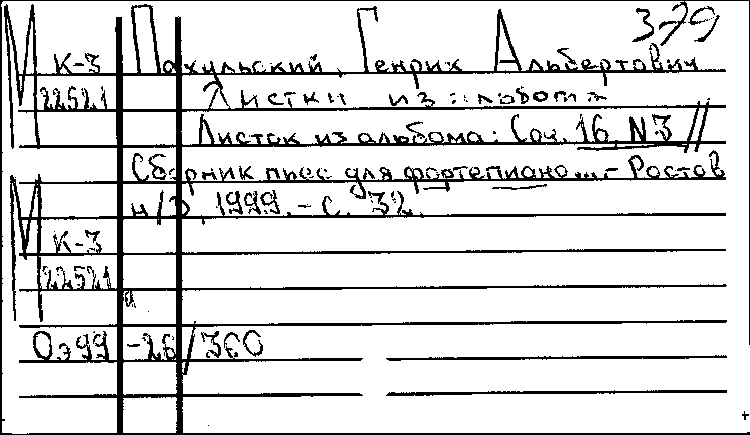 379
М К-3 Пахульский, Генрих Альбертович
22521 Листки из альбома
Листок из альбома: Соч. 16, N3 //
Сборник пьес для фортепиано...- Ростов
н/Д, 1999. - с. 32.
М К-3
22521
Оэ99-26/360